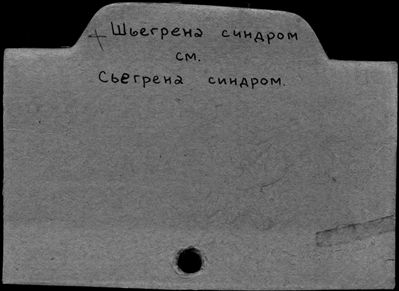 + Шьегрена синдром
см.
Сьегрена синдром.